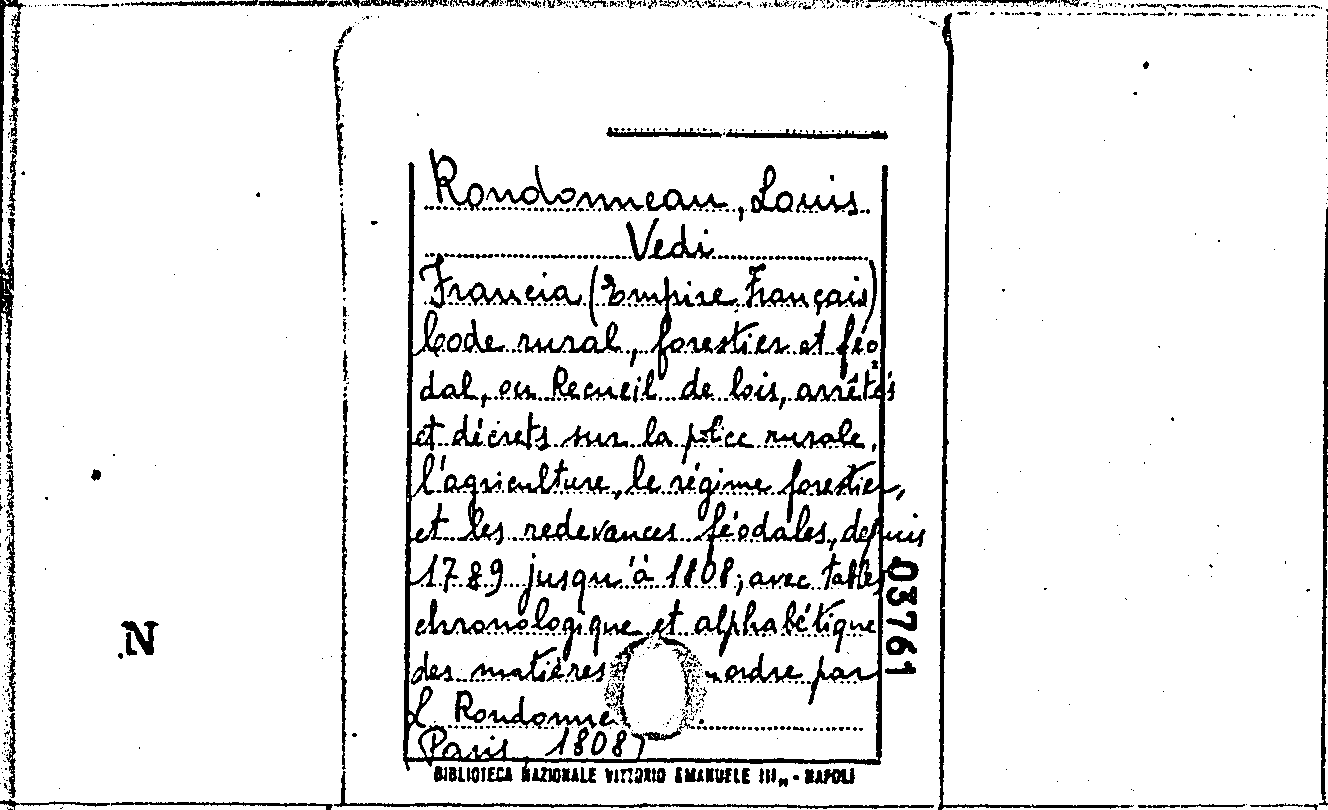 Rondonneau, Louis
Vedi
Francia (Empire Français)
Code rural, forestier et féo
dal, ou Recueil de lois, arrêtés
et décrets sur la police rurale,
l'agriculture, le régime forestier,
et les redevances féodales, depuis
1789 jusqu'à 1808; avec tables
chronologique et alphabétique
des matières ordre par
L. Rondonne
Paris, 1808
BIBLIOTECA NAZIONALE VITTORIO EMANUELE III,, - NAPOLI
03761
N